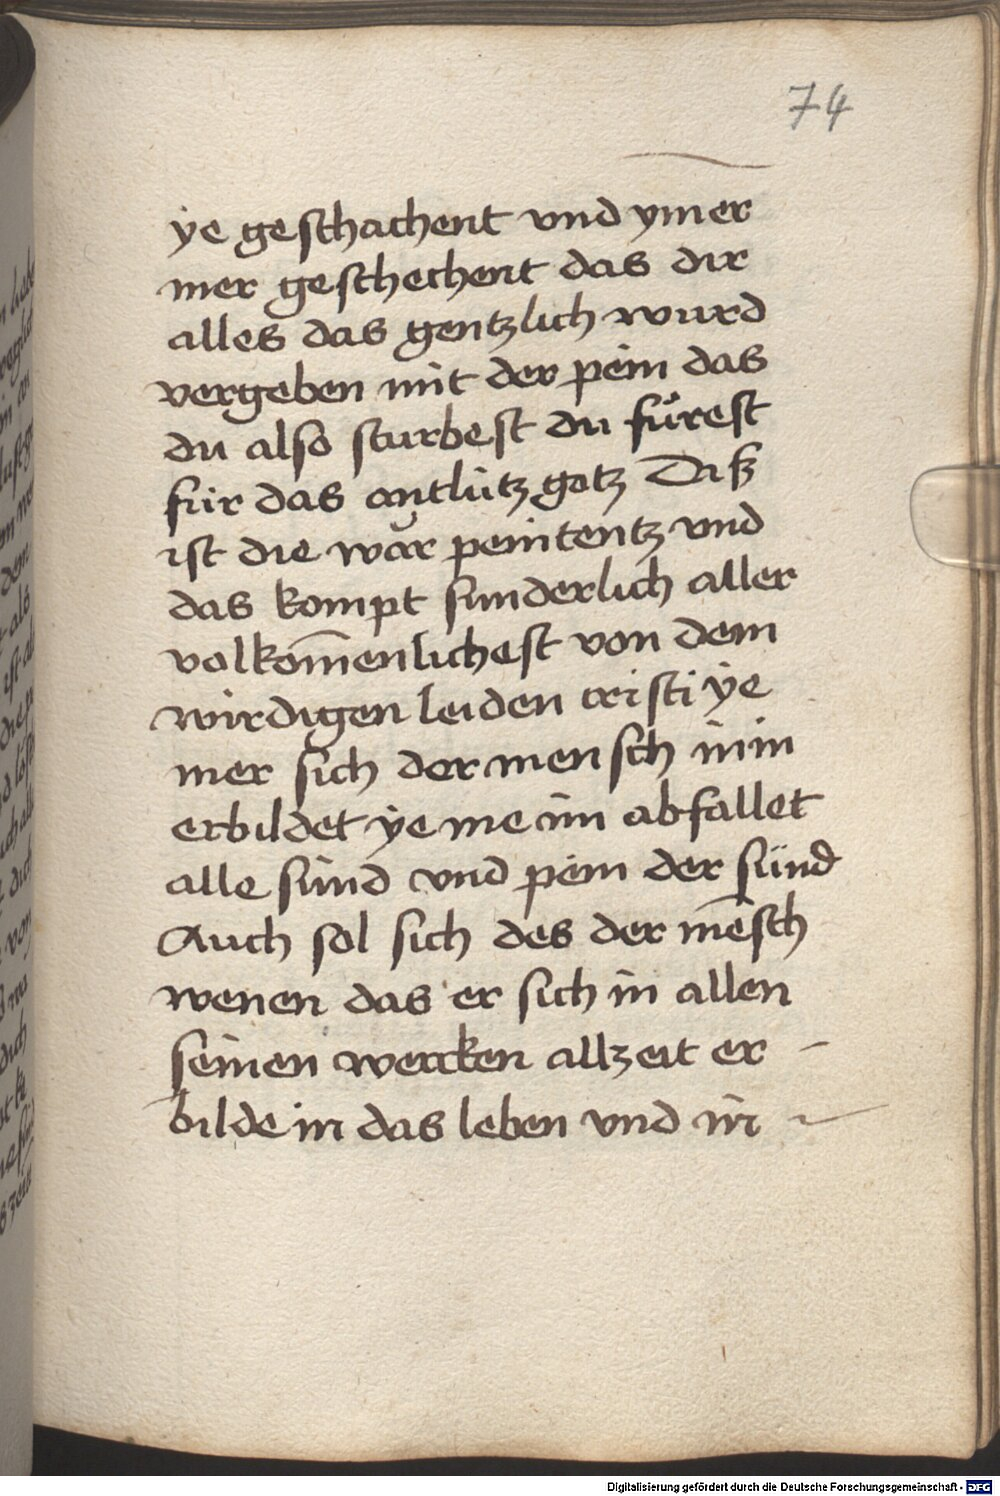 74
ye geschachent vnd ymer
mer geschechent das dir
alles das gentzlich wurd
vergeben mit der pein das
du also sturbest du fürest
für das antlütz gotz Daß
ist die wår penitentz vnd
das kompt sunderlich aller
volkom̄enlichest von dem
wirdigen leiden cristi ye
mer sich der mensch in in
erbildet ye me im abfallet
alle sünd vnd pein der sünd
Auch sol sich des der mēsch
wenen das er sich in allen
seinen wercken allzeit er
bilde in das leben vnd in
Digitalisierung gefördert durch die Deutsche Forschungsgemeinschaft - DFG